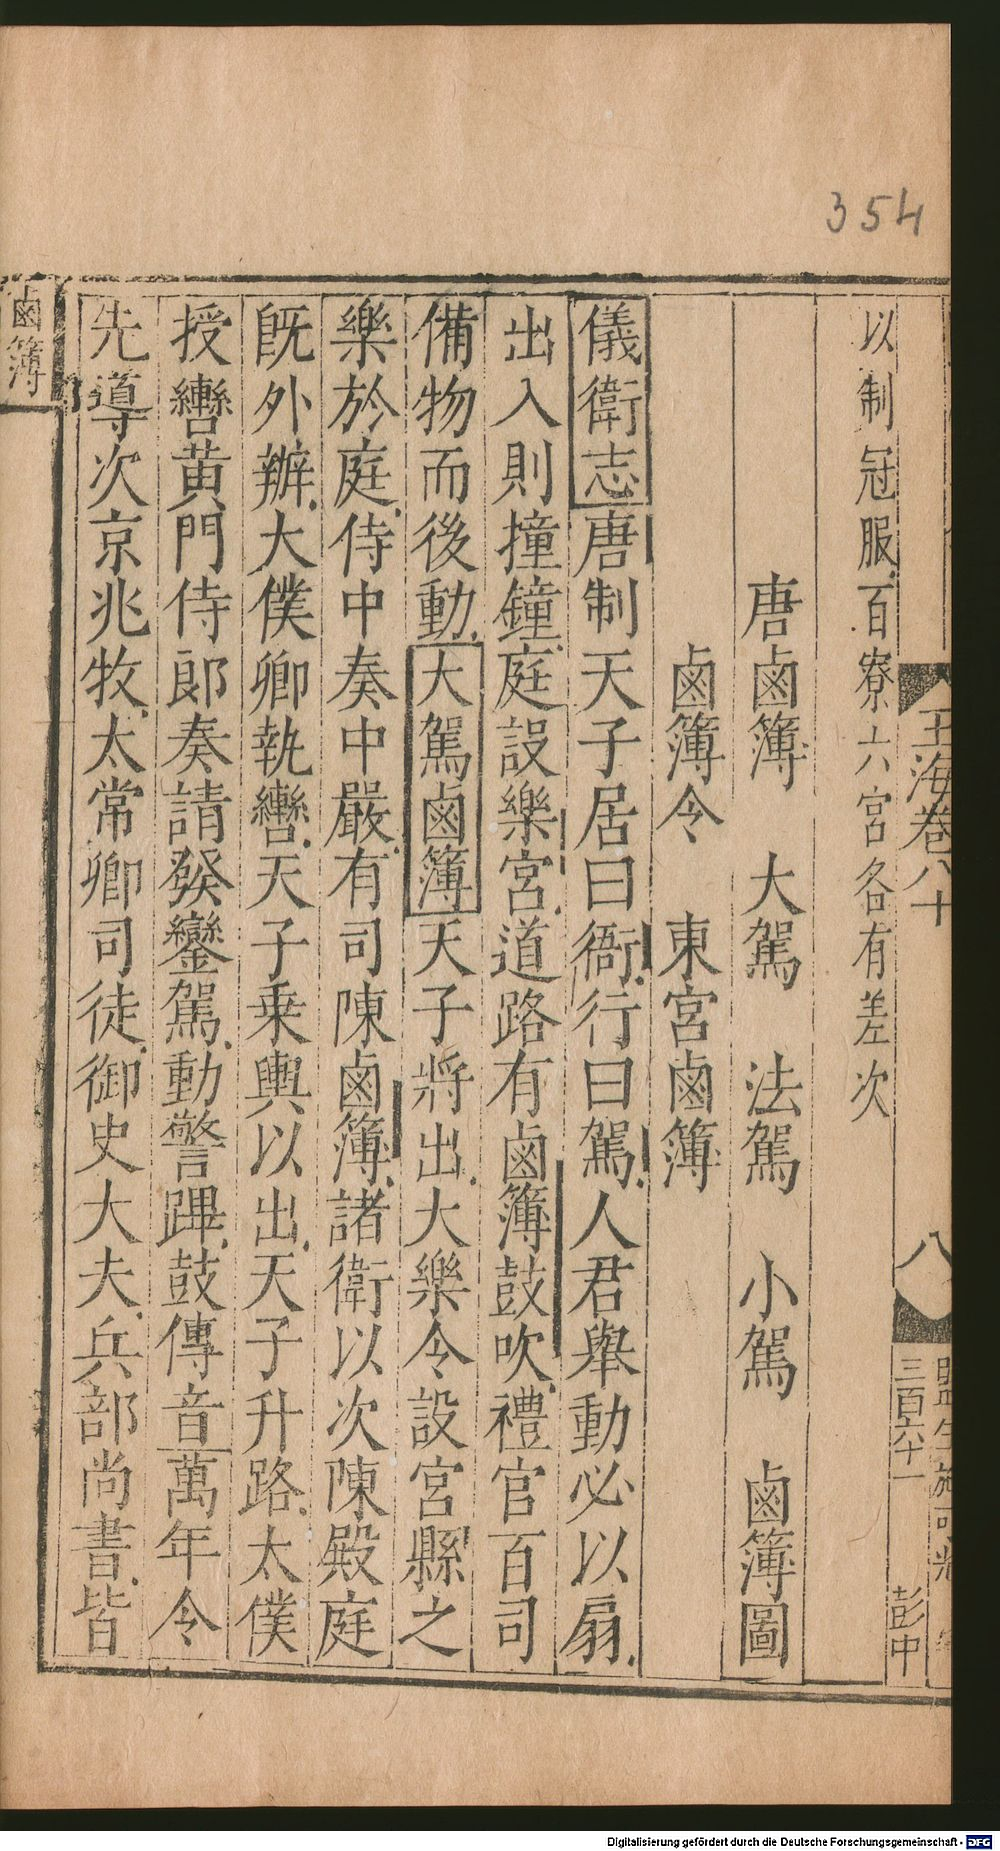 354
玉海卷八十
八
三百六十一
彭中
以制冠服百寮六宮各有差次
唐鹵簿　大駕　法駕　小駕　鹵簿圖
鹵簿令　東宮鹵簿
儀衛志唐制天子居曰衙行曰駕人君舉動必以扇
出入則撞鐘庭設樂宮道路有鹵簿鼓吹禮官百司
備物而後動大駕鹵簿天子將出大樂令設宮縣之
樂於庭侍中奏中嚴有司陳鹵簿諸衛以次陳殿庭
旣外辦大僕卿執轡天子乗輿以出天子升路太僕
授轡黄門侍郎奏請發鑾駕動警蹕鼓傳音萬年令
先導次京兆牧太常卿司徒御史大夫兵部尚書皆
鹵簿
Digitalisierung gefördert durch die Deutsche Forschungsgemeinschaft - DFG